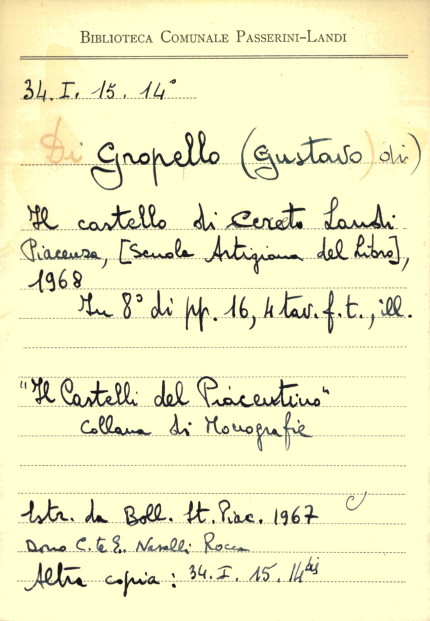 BIBLIOTECA COMUNALE PASSERINI-LANDI
34. I. 15. 14°
Di Gropello (Gustavo) di)
Il castello di Cereto Landi
Piacenza, [Scuola Artigiana del Libro],
1968
In 8° di pp. 16, 4 tav. f. t., ill.
"Il Castelli del Piacentino"
Collana di Monografie
Estr. da Boll. St. Piac. 1967
Dono C. te E. Nasalli Rocca
Altra copia : 34. I. 15. 14 bis